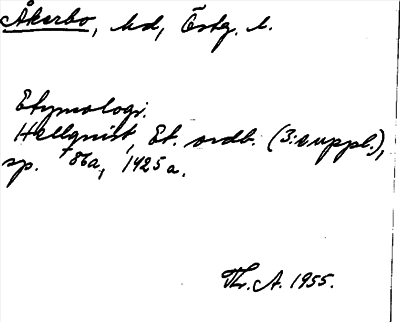 Åkerbo, hd, Östg. l.
Etymologi.
Hellquist, Et. ordb. (3:e uppl.),
sp. 86a, 1425a.
Th. A. 1955.